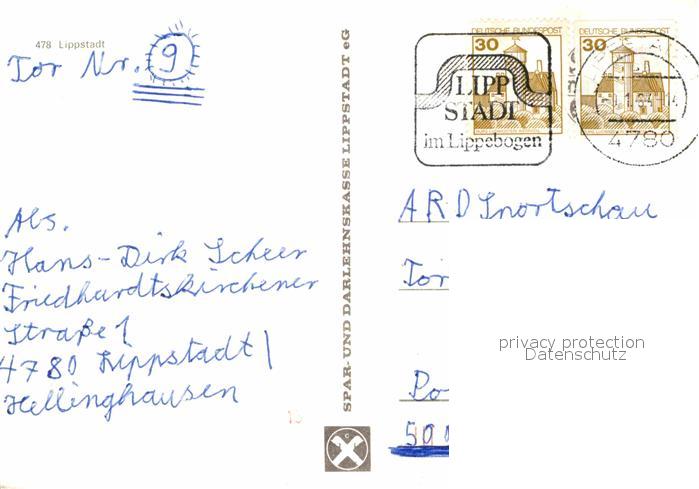 478 Lippstadt
Tor Nr. 9
Abs.
Hans-Dirk Scheer
Friedhardtskirchener
Straße 1
4780 Lippstadt/
Hellinghausen
SPAR- UND DARLEHNSKASSE LIPPSTADT eG
DEUTSCHE BUNDESPOST
30
DEUTSCHE BUNDESPOST
30
LIPP
STADT
im Lippebogen
4780
ARD Snortschau
Tor
Po
500
privacy protection
Datenschutz